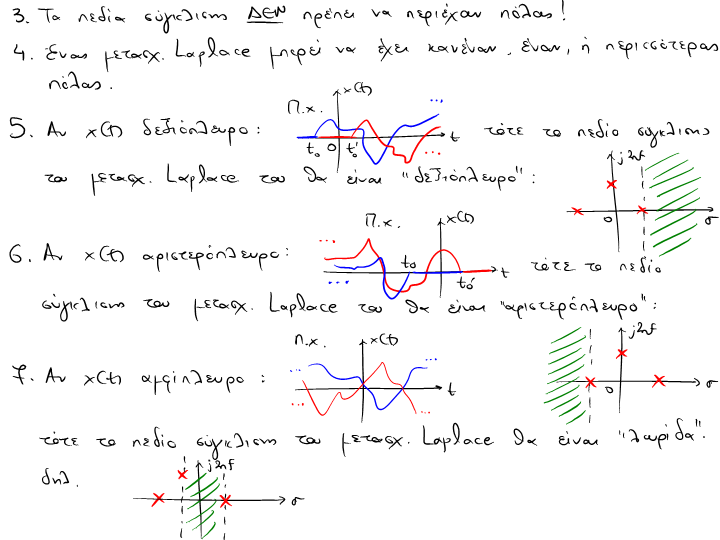 3. Τα πεδία σύγκλισης ΔΕΝ πρέπει να περιέχουν πόλους!
4. Ένας μετασχ. Laplace μπορεί να έχει κανέναν, έναν, ή περισσότερους
πόλους.
5. Αν x(t) δεξιόπλευρο: Π.χ. x(t) ... t₀ 0 t₀' t ... τότε το πεδίο σύγκλισης
του μετασχ. Laplace του θα είναι "δεξιόπλευρο": j2πf 0 σ
6. Αν x(t) αριστερόπλευρο: Π.χ. x(t) ... ... t₀ t₀' t τότε το πεδίο
σύγκλισης του μετασχ. Laplace του θα είναι "αριστερόπλευρο": j2πf 0 σ
7. Αν x(t) αμφίπλευρο: Π.χ. x(t) ... ... ... ... t
τότε το πεδίο σύγκλισης του μετασχ. Laplace θα είναι "λωρίδα".
δηλ. j2πf σ